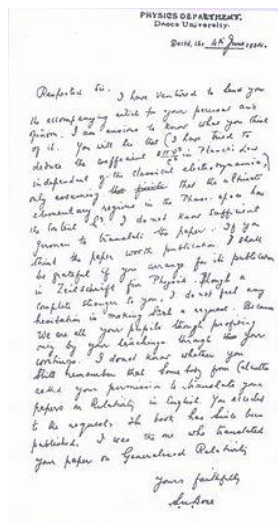 PHYSICS DEPARTMENT,
Dacca University.
Dated, the 4th June 1924.
Respected Sir, I have ventured to send you
the accompanying article for your perusal and
opinion. I am anxious to know what you think
of it. You will see that I have tried to
deduce the coefficient in Planck's Law
independent of the classical electrodynamics,
only assuming that the ultimate
elementary regions in the Phase-space has
the content h³. I do not know sufficient
German to translate the paper. If you
think the paper worth publication, I shall
be grateful if you arrange for its publication
in Zeitschrift für Physik. Though a
complete stranger to you, I do not feel any
hesitation in making such a request. Because
we are all your pupils though profiting
only by your teachings through your
writings. I do not know whether you
still remember that somebody from Calcutta
asked your permission to translate your
papers on Relativity in English. You acceded
to the request. The book has since been
published. I was the one who translated
your paper on Generalised Relativity
Yours faithfully
S.N. Bose